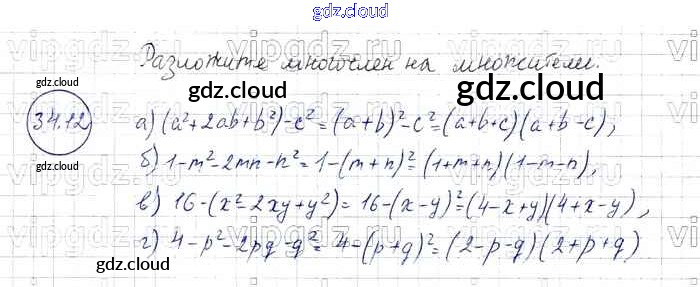 gdz.cloud
Разложите многочлен на множители.
gdz.cloud
gdz.cloud
34.12
а) (a²+2ab+b²)-c²=(a+b)²-c²=(a+b+c)(a+b-c);
б) 1-m²-2mn-n²=1-(m+n)²=(1+m+n)(1-m-n),
в) 16-(x²-2xy+y²)=16-(x-y)²=(4-x+y)(4+x-y),
г) 4-p²-2pq-q²=4-(p+q)²=(2-p-q)(2+p+q)
gdz.cloud
gdz.cloud